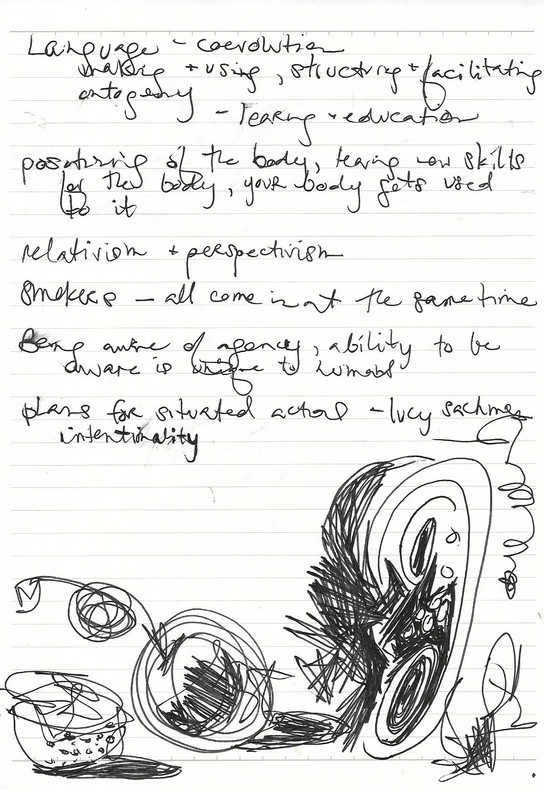 Language - coevolution
making + using, structuring + facilitating
ontogeny
- learing + education
posturing of the body, learing new skills
for the body, your body gets used
to it
relativism + perspectivism
smokers - all come in at the same time
Being aware of agency, ability to be
aware is unique to humans
plans for situated actions - lucy sachmen
intentionality